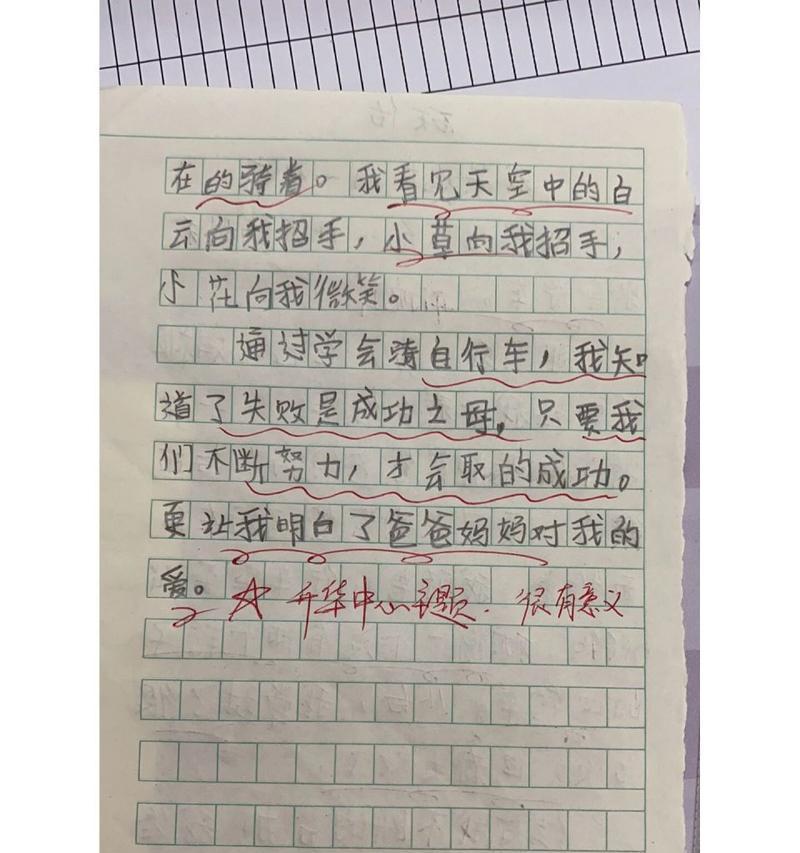 在的骑着。我看见天空中的白
云向我招手，小草向我招手，
小花向我微笑。
通过学会骑自行车，我知
道了失败是成功之母。只要我
们不断努力，才会取的成功。
更让我明白了爸爸妈妈对我的
爱。
升华中心主题. 很有意义